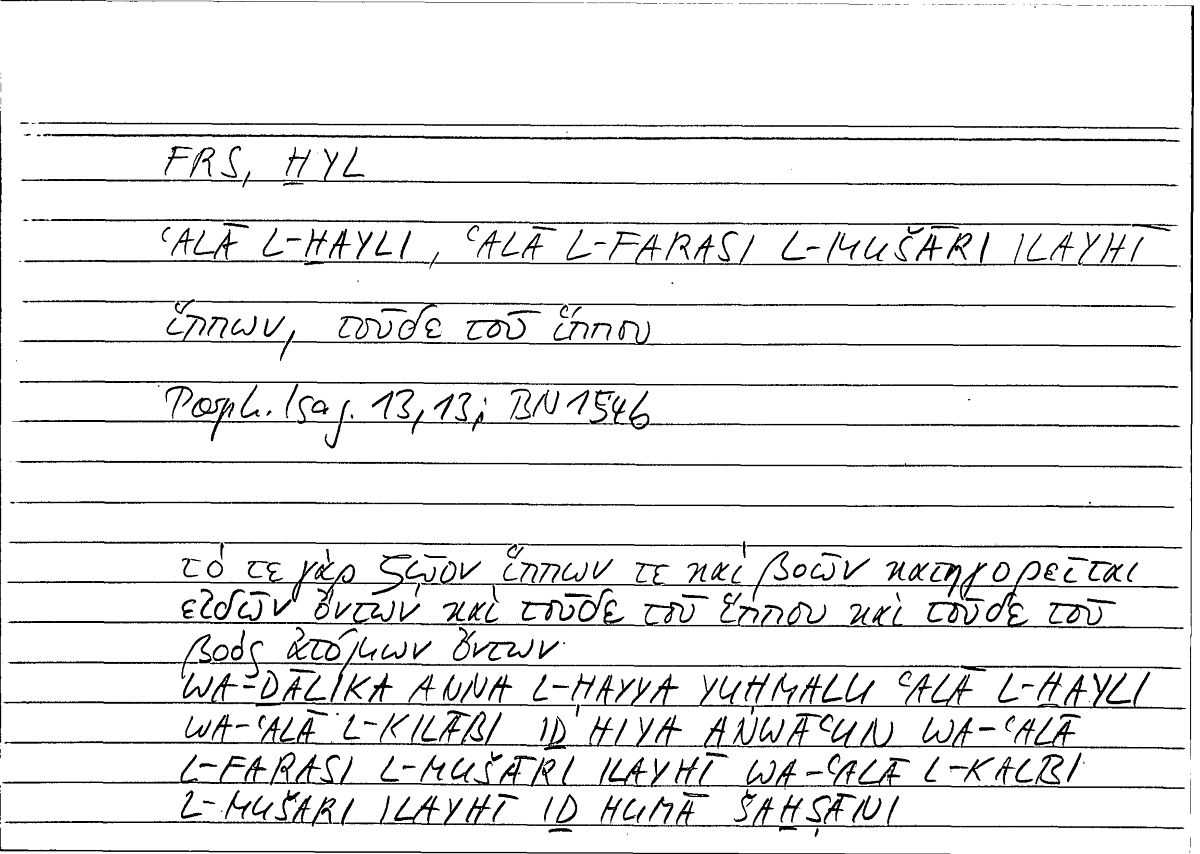 FRS, H̱YL
ʿALĀ L-H̱AYLI, ʿALĀ L-FARASI L-MUŠĀRI ILAYHĪ
ἵππων, τοῦδε τοῦ ἵππου
Porph. Isag. 13,13; BN 154b
τό τε γὰρ ζῷον ἵππων τε καὶ βοῶν κατηγορεῖται
εἰδῶν ὄντων καὶ τοῦδε τοῦ ἵππου καὶ τοῦδε τοῦ
βοὸς ἀτόμων ὄντων
WA-ḎĀLIKA ANNA L-ḤAYYA YUḤMALU ʿALĀ L-H̱AYLI
WA-ʿALĀ L-KILĀBI IḎ HIYA ANWĀʿUN WA-ʿALĀ
L-FARASI L-MUŠĀRI ILAYHĪ WA-ʿALĀ L-KALBI
L-MUŠARI ILAYHĪ IḎ HUMĀ ŠAH̱ṢĀNI